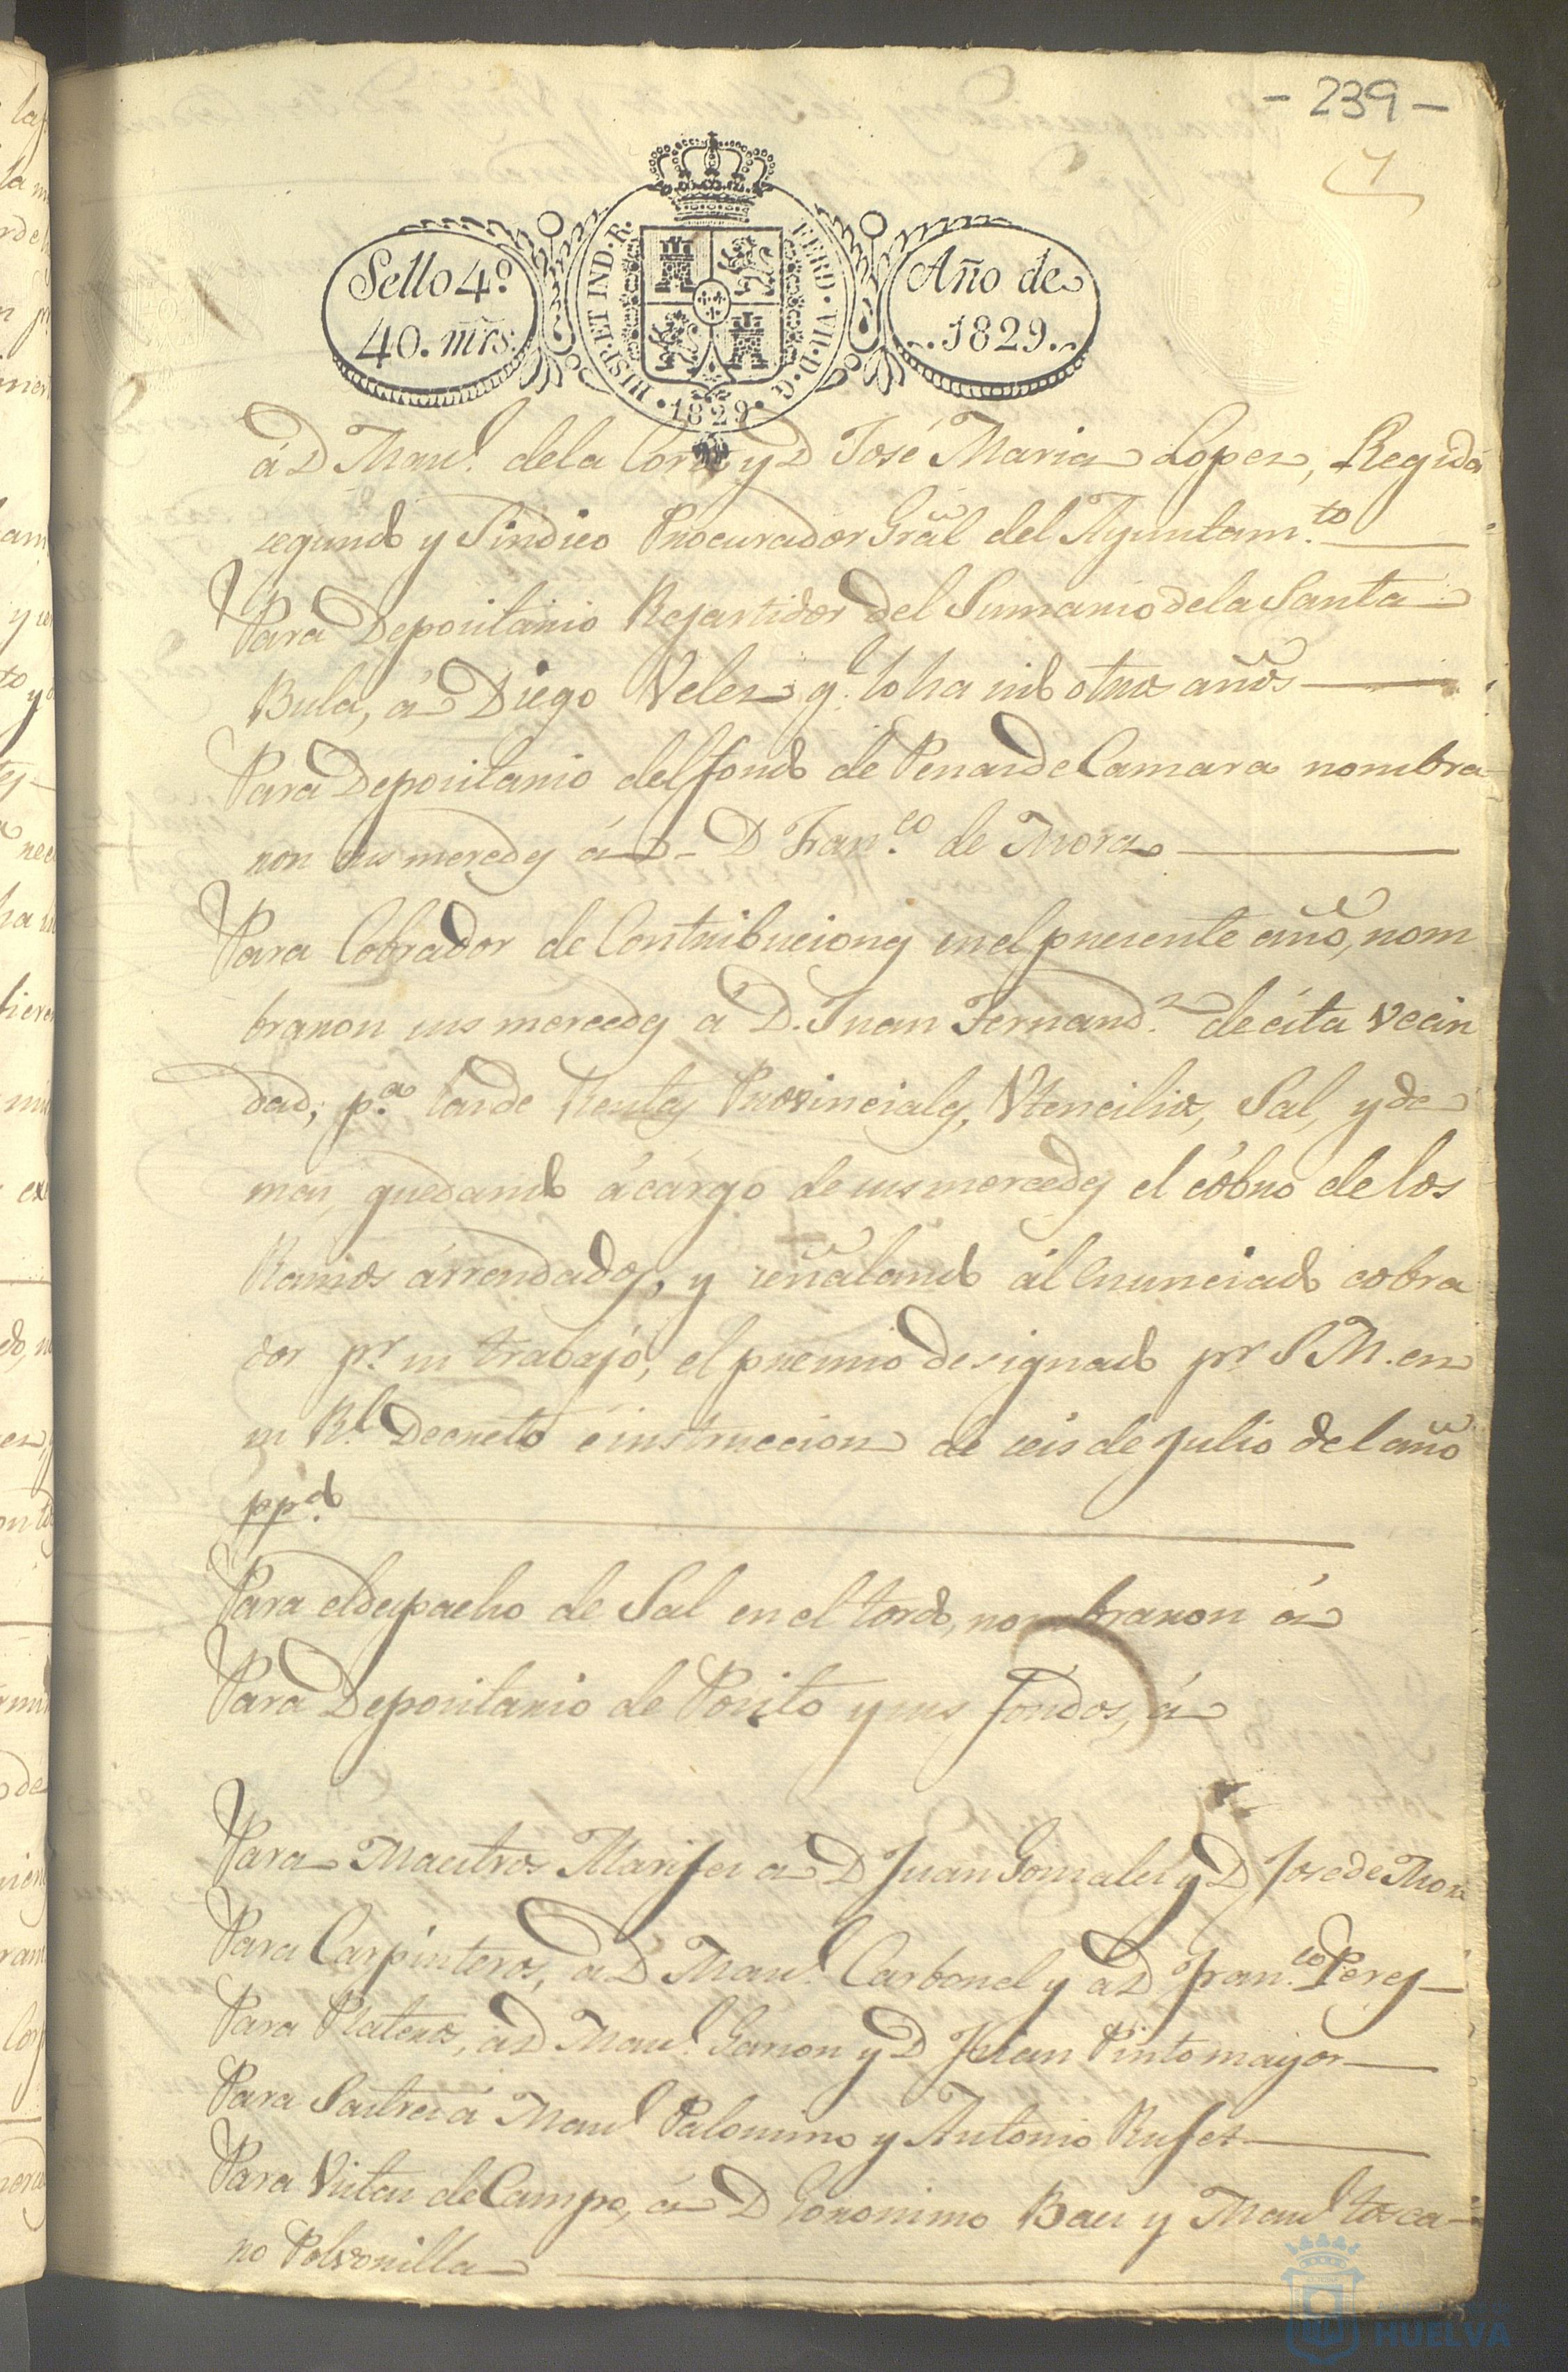 - 239 -
Sello 4.º
40. mrs.
HISP. ET IND. R.
FERD. VII. D. G.
· 1829 ·
Año de
1829.
á D Man.l de la Corte y D José Maria Lopez, Regidor
segundo y Sindico Procurador Gral del Ayuntam.to
Para Depositario Repartidor del Sumario de la Santa
Bula, á Diego Velez q.e lo ha sido otros años
Para Depositario del fondo de Penas de Camara nombra
ron sus mercedes á D Fran.co de Mora
Para Cobrador de Contribuciones en el presente año, nom
braron sus mercedes á D. Juan Fernand.z de ésta vecin
dad; p.a las de Rentas Provinciales, Utencilios, Sal, y de
mas quedando á cárgo de sus mercedes el cóbro de los
Ramos árrendados, y señalando ál enunciado cobra
dor p.r su trabajo, el premio designado p.r S. M. en
su R.l Decreto é instruccion de seis de Julio del año
pp.do
Para el despacho de Sal en el tordo, nombraron á
Para Depositario de Posito y sus fondos, á
Para Maestros Alarifes a D Juan Gonzales y D Jose de Mora
Para Carpinteros, á D Man.l Carbonel y á D Fran.co Perez
Para Plateros, á D Man.l Garzon y D Juan Pinto mayor
Para Sastres á Man.l Palomino y Antonio Rufet
Para Vistas de Campo, á D Geronimo Baez y Man.l Tosca
no Polvorilla
HUELVA